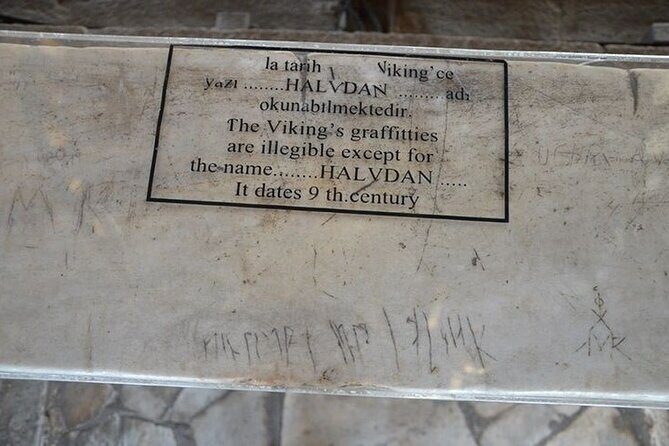 la tarih Viking'ce
yazı ........HALVDAN ........adı
okunabilmektedir.
The Viking's graffitties
are illegible except for
the name........HALVDAN .....
It dates 9 th.century